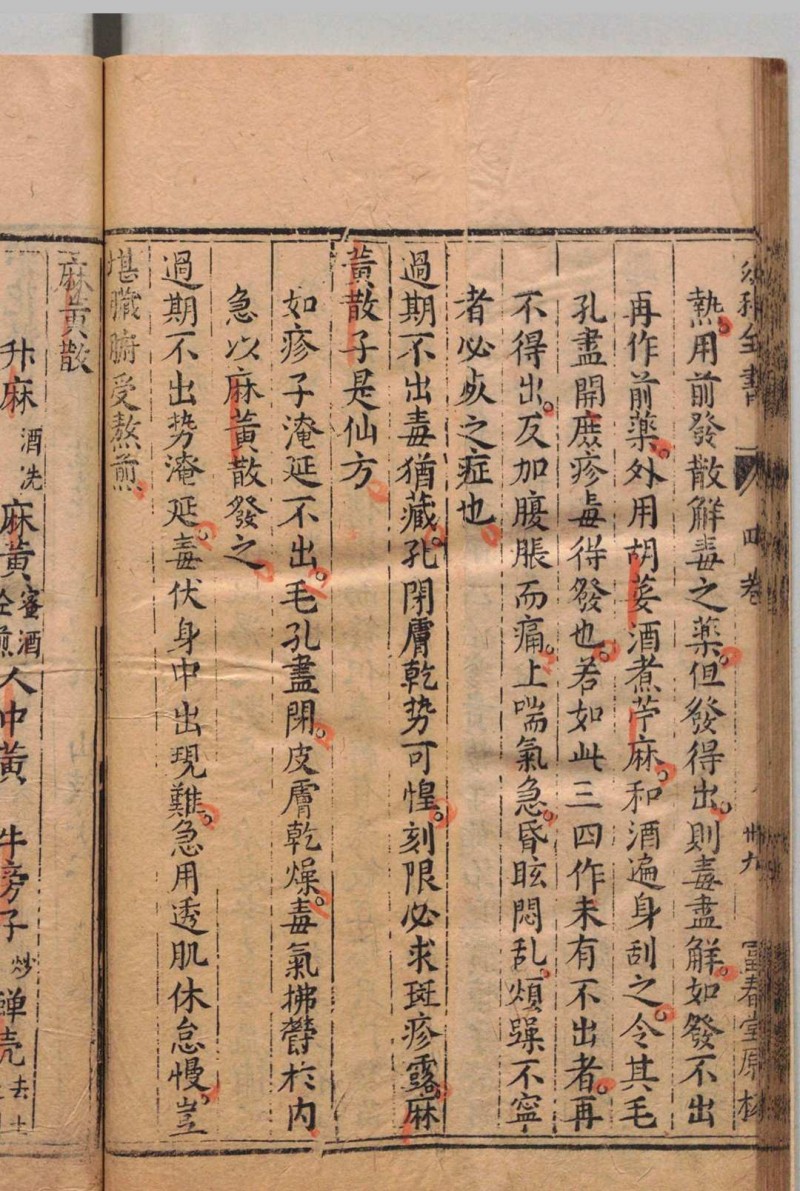 全書 四卷 卅九 富春堂原板
熱用前發散解毒之藥但發得出則毒盡解如發不出
再作前藥外用胡荽酒煮苧麻和酒遍身刮之令其毛
孔盡開麻疹毒得發也若如此三四作未有不出者再
不得出反加腹脹而痛上喘氣急昏眩悶乱煩躁不寧
者必死之症也
過期不出毒猶藏孔閉膚乾势可惶刻限必求斑疹露麻
黃散子是仙方
如疹子淹延不出毛孔盡閉皮膚乾燥毒氣拂欝於内
急以麻黃散發之
過期不出势淹延毒伏身中出現難急用透肌休怠慢豈
堪臟腑受熬煎
麻黃散
升麻 酒洗 麻黃 蜜酒 人中黃 牛旁子 炒 蝉壳 去